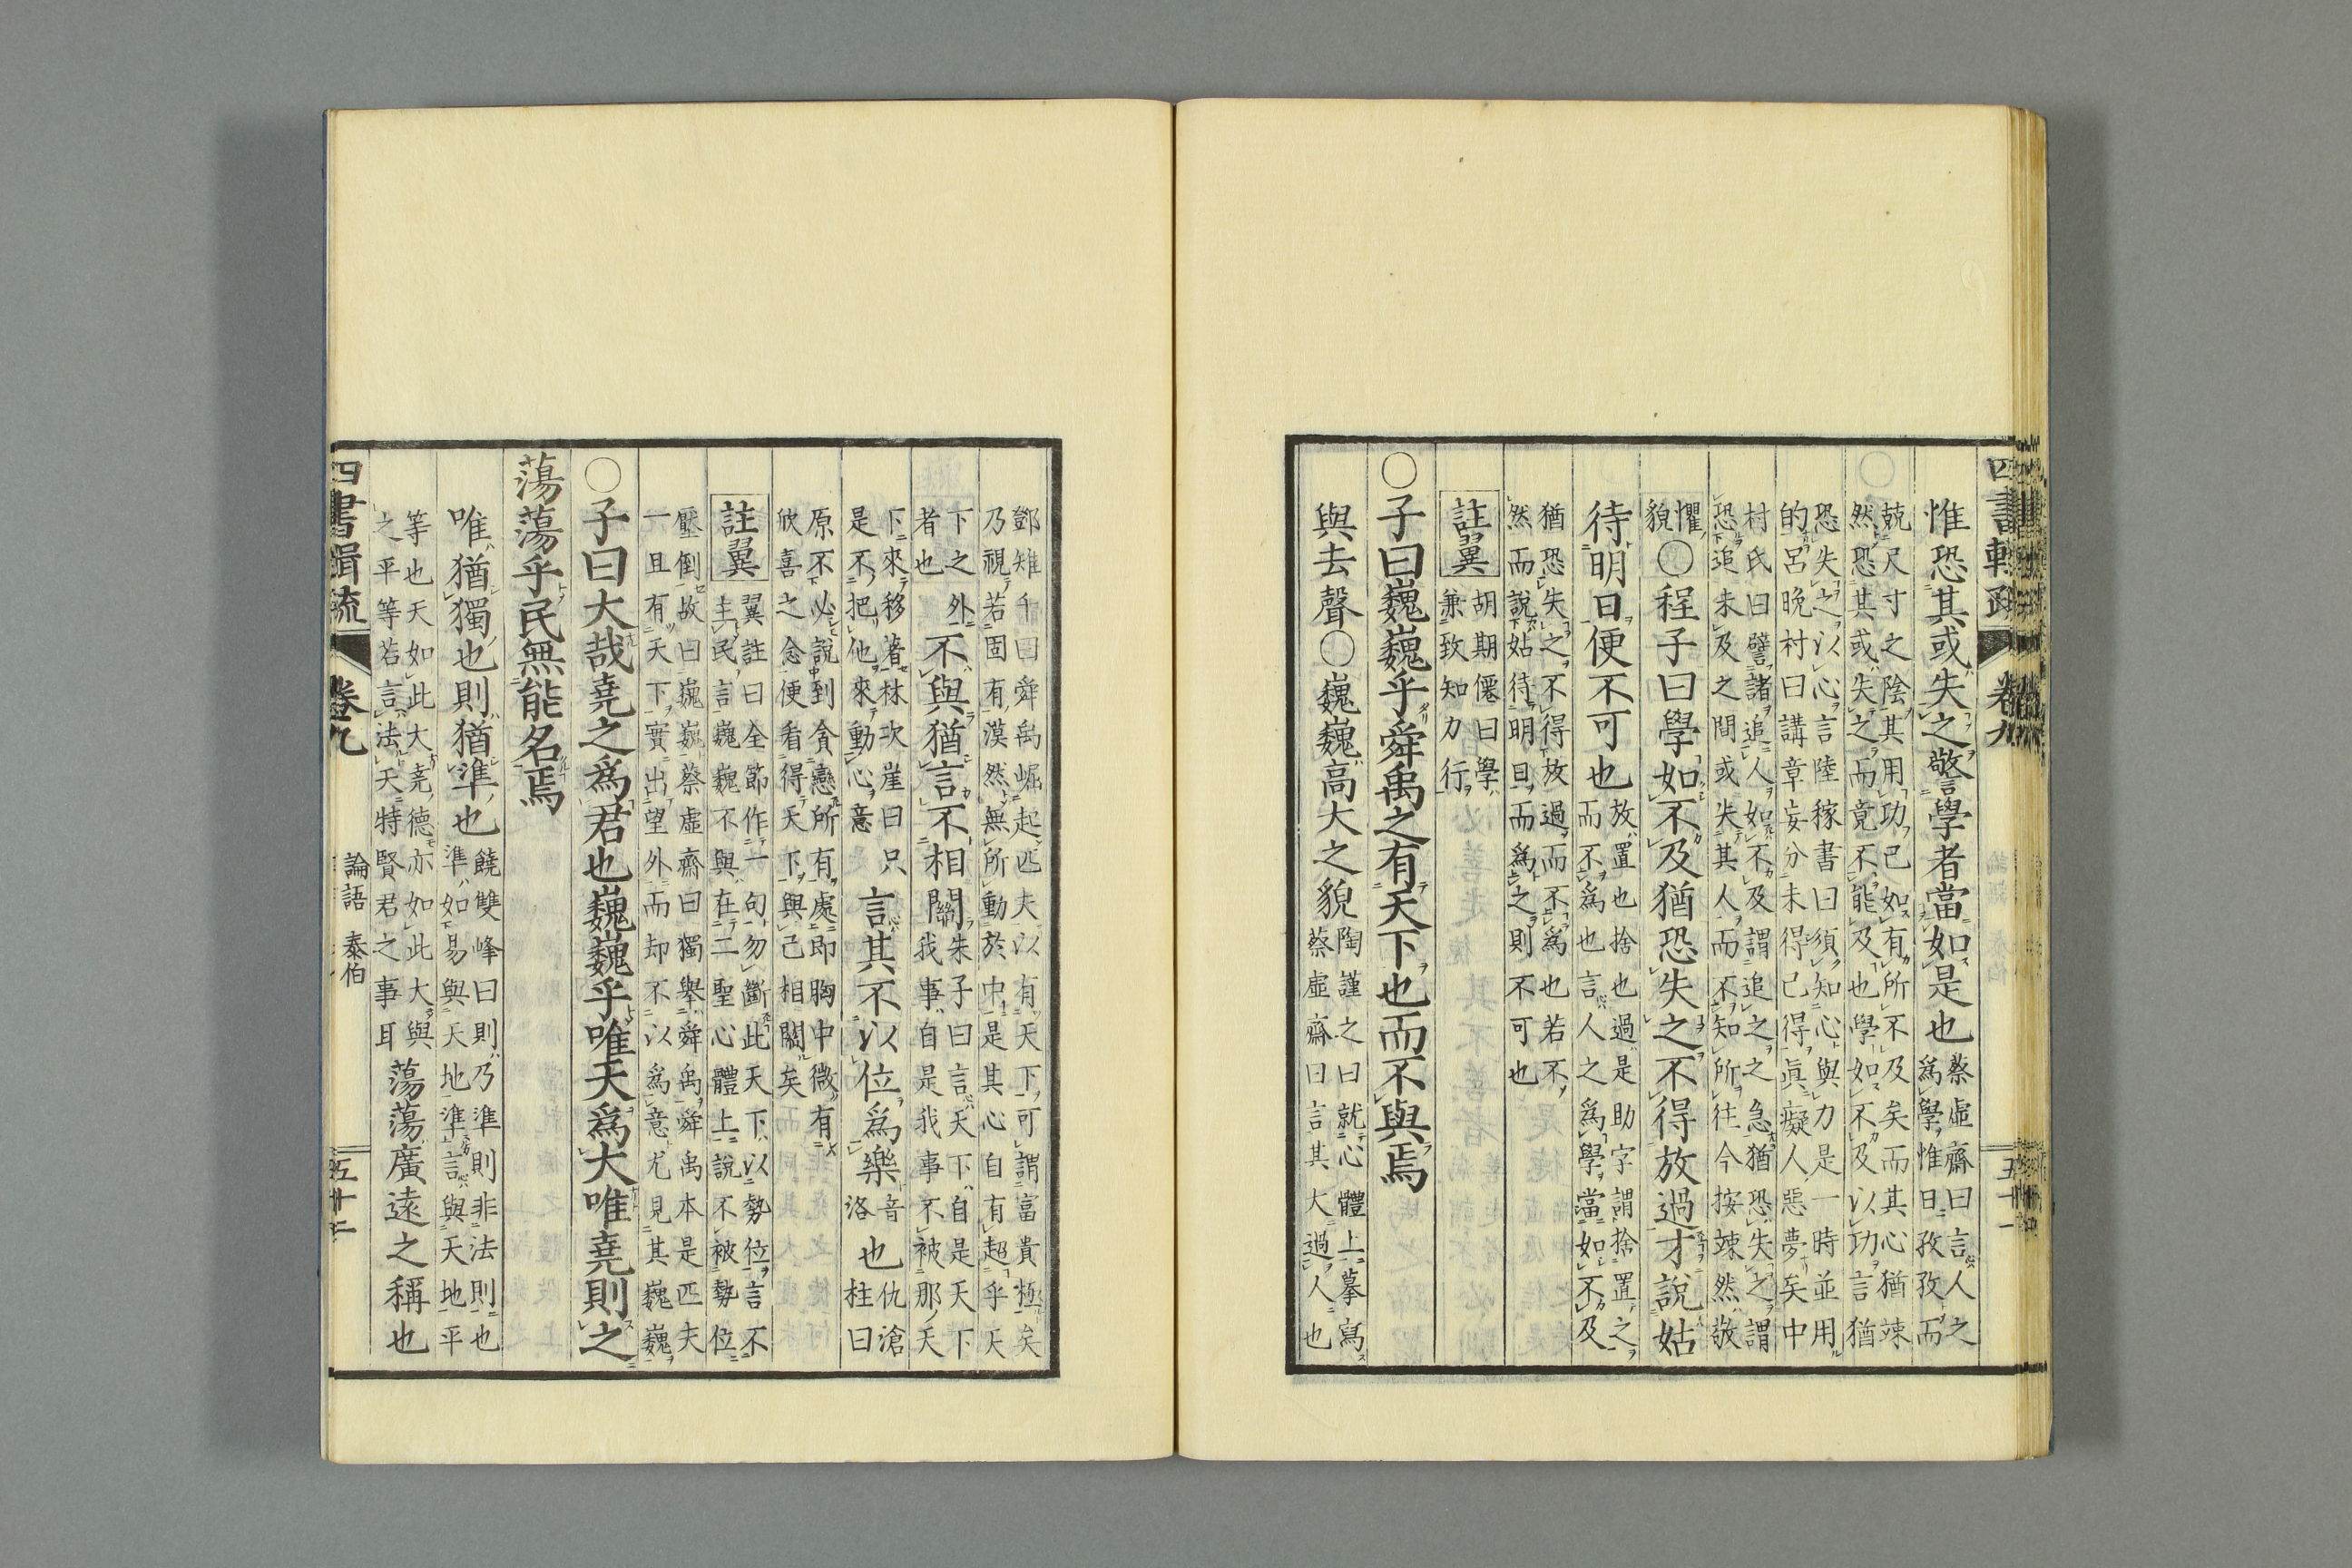 四書輯疏
卷九
五十一
惟恐其或失之警學者當如是也
蔡虛齋曰言人之
爲學惟日孜孜而
兢尺寸之陰其用功已如有所不及矣而其心猶竦
然恐其或失之而竟不能及也學如不及以功言猶
恐失之以心言陸稼書曰須知心與力是一時並用
的呂晚村曰講章妄分未得已得眞癡人惡夢矣中
村氏曰譬諸追人如不及謂追之之急猶恐失之謂
恐追未及之間或失其人而不知所往今按竦然敬
懼
貌
○程子曰學如不及猶恐失之不得放過才說姑
待明日便不可也
放置也捨也過是助字謂捨置之
而不爲也言人之爲學當如不及
猶恐失之不得放過而不爲也若不
然而說姑待明日而爲之則不可也
註翼
胡期僊曰學
兼致知力行
○子曰巍巍乎舜禹之有天下也而不與焉
與去聲○巍巍高大之貌
陶謹之曰就心體上摹寫
蔡虛齋曰言其大過人也
鄧雉千曰舜禹崛起匹夫以有天下可謂富貴極矣
乃視若固有漠然無所動於中是其心自有超乎天
下之外
者也
不與猶言不相關
朱子曰言天下自是天下
我事自是我事不被那天
下來移著林次崖曰只
是不把他來動心意
言其不以位爲樂
音
洛
也
仇滄
柱曰
原不必說到貪戀所有處即胸中微有
欣喜之念便看得天下與己相關矣
註翼
翼註曰全節作一句勿斷此天下以勢位言不
主民言巍巍不與在二聖心體上說不被勢位
壓倒故曰巍巍蔡虛齋曰獨舉舜禹舜禹本是匹夫
一旦有天下實出望外而却不以爲意尤見其巍巍
○子曰大哉堯之爲君也巍巍乎唯天爲大唯堯則之
蕩蕩乎民無能名焉
唯猶獨也則猶準也
饒雙峰曰則乃準則非法則也
準如易與天地準言與天地平
等也天如此大堯德亦如此大與
之平等若言法天特賢君之事耳
蕩蕩廣遠之稱也
四書輯疏
卷九
論語 泰伯
五十二